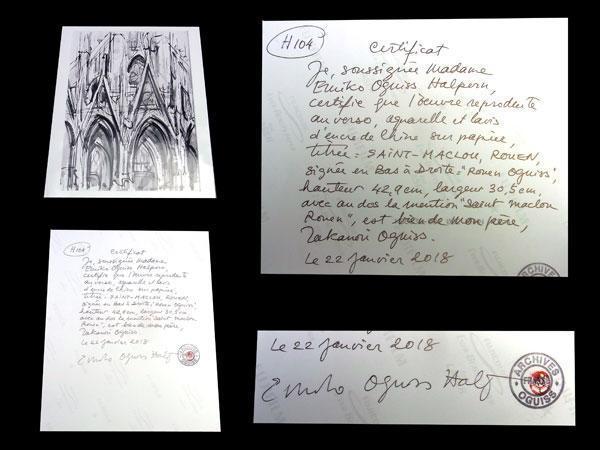 H104
Certificat
Je, soussignée Madame
Emiko Oguiss Halpern,
certifie que l'oeuvre reproduite
au verso, aquarelle et lavis
d'encre de Chine sur papier,
titrée : SAINT-MACLOU, ROUEN,
signée en Bas à Droite : "Rouen Oguiss",
hauteur 42,9cm, largeur 30,5cm,
avec au dos la mention "Saint maclou
Rouen", est bien de mon père,
Takanori Oguiss.
Le 22 Janvier 2018
H104
Certificat
Je, soussignée Madame
Emiko Oguiss Halpern,
certifie que l'oeuvre reproduite
au verso, aquarelle et lavis
d'encre de Chine sur papier,
titrée : SAINT-MACLOU, ROUEN,
signée en Bas à Droite : "Rouen Oguiss",
hauteur 42,9cm, largeur 30,5cm,
avec au dos la mention "Saint maclou
Rouen", est bien de mon père,
Takanori Oguiss.
Le 22 Janvier 2018
Emiko Oguiss Halp
Le 22 Janvier 2018
Emiko Oguiss Halp
ARCHIVES
OGUISS